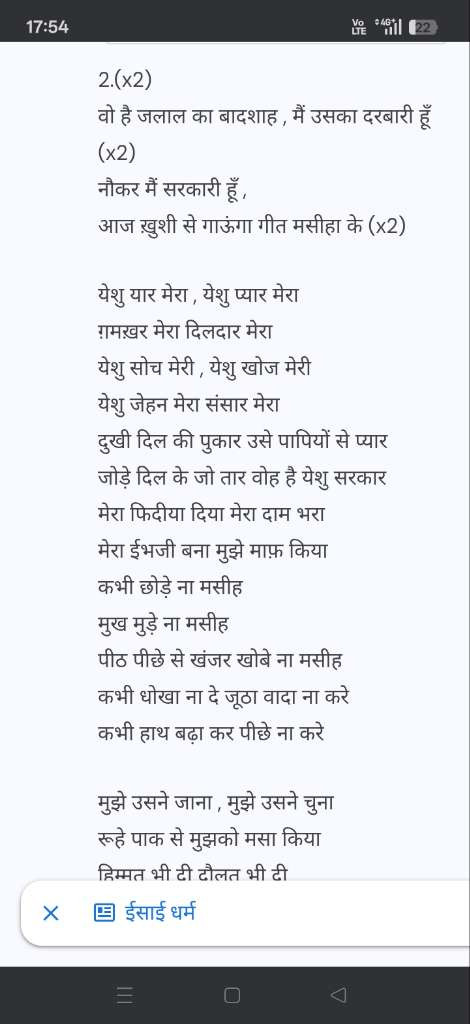 17:54
Vo LTE 4G+ 22
2.(x2)
वो है जलाल का बादशाह , मैं उसका दरबारी हूँ
(x2)
नौकर मैं सरकारी हूँ ,
आज ख़ुशी से गाऊंगा गीत मसीहा के (x2)
येशु यार मेरा , येशु प्यार मेरा
ग़मख़र मेरा दिलदार मेरा
येशु सोच मेरी , येशु खोज मेरी
येशु जेहन मेरा संसार मेरा
दुखी दिल की पुकार उसे पापियों से प्यार
जोड़े दिल के जो तार वोह है येशु सरकार
मेरा फिदीया दिया मेरा दाम भरा
मेरा ईभजी बना मुझे माफ़ किया
कभी छोड़े ना मसीह
मुख मुड़े ना मसीह
पीठ पीछे से खंजर खोबे ना मसीह
कभी धोखा ना दे जूठा वादा ना करे
कभी हाथ बढ़ा कर पीछे ना करे
मुझे उसने जाना , मुझे उसने चुना
रूहे पाक से मुझको मसा किया
हिम्मत भी दी दौलत भी दी
ईसाई धर्म